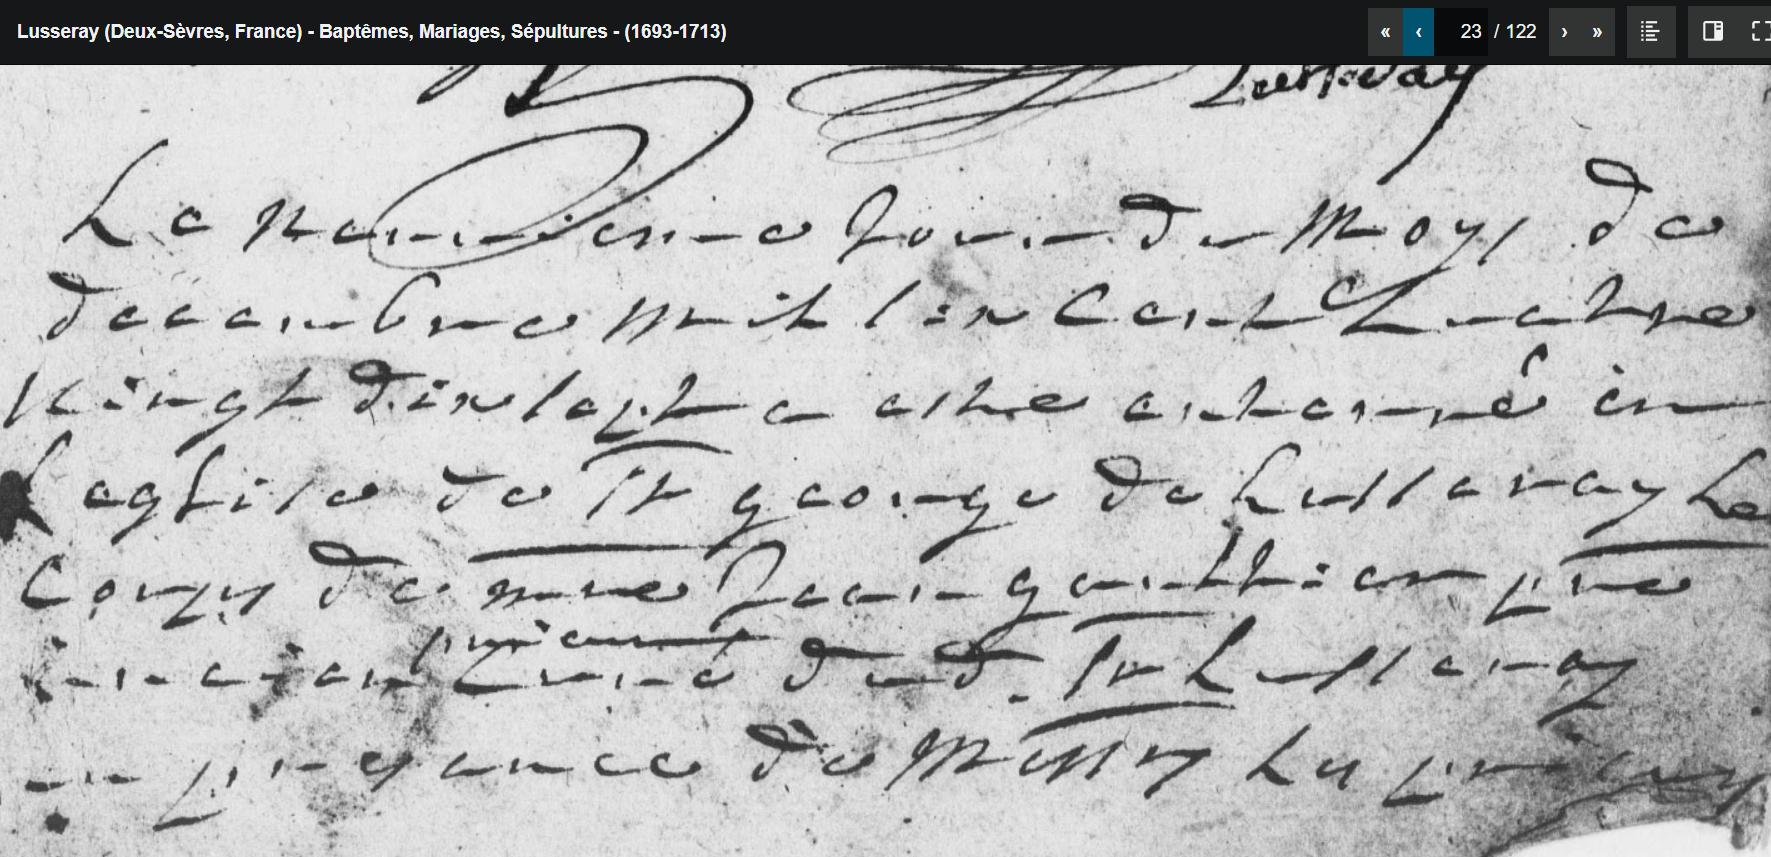 Lusseray (Deux-Sèvres, France) - Baptêmes, Mariages, Sépultures - (1693-1713)
« ‹ 23 / 122 › »
Lusseray
Le neuviesme Jour du moys de
decembre mil six Cent Quatre
Vingt dixsept a este enterré en
Leglise de St george de Lusseray Le
Corps de mre Jean gaulthier pre
prieur
Curé dud. St Lusseray
en presance de Messrs Les prieurs